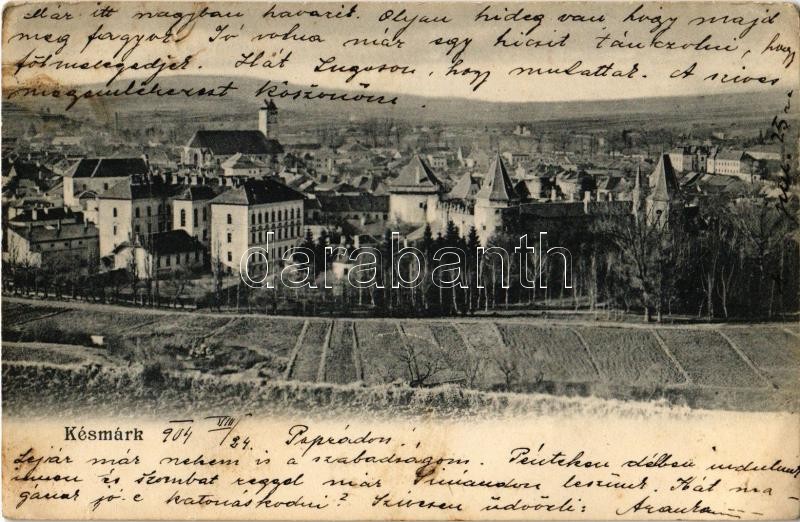 Már itt nagyban havazik. Olyan hideg van hogy majd
meg fagyok. Jó volna már egy kicsit tánczolni, hogy
fölmelegedjek. Hát Lugoson, hogy mulattak. A szives
megemlékezést köszönöm
darabanth
Késmárk 904 VIII/24. Poprádon!
Lejár már nekem is a szabadságom. Pénteken délben indulunk
innen és szombat reggel már leszünk. Hát ma-
gának jó-e katonáskodni? Szivesen üdvözli: